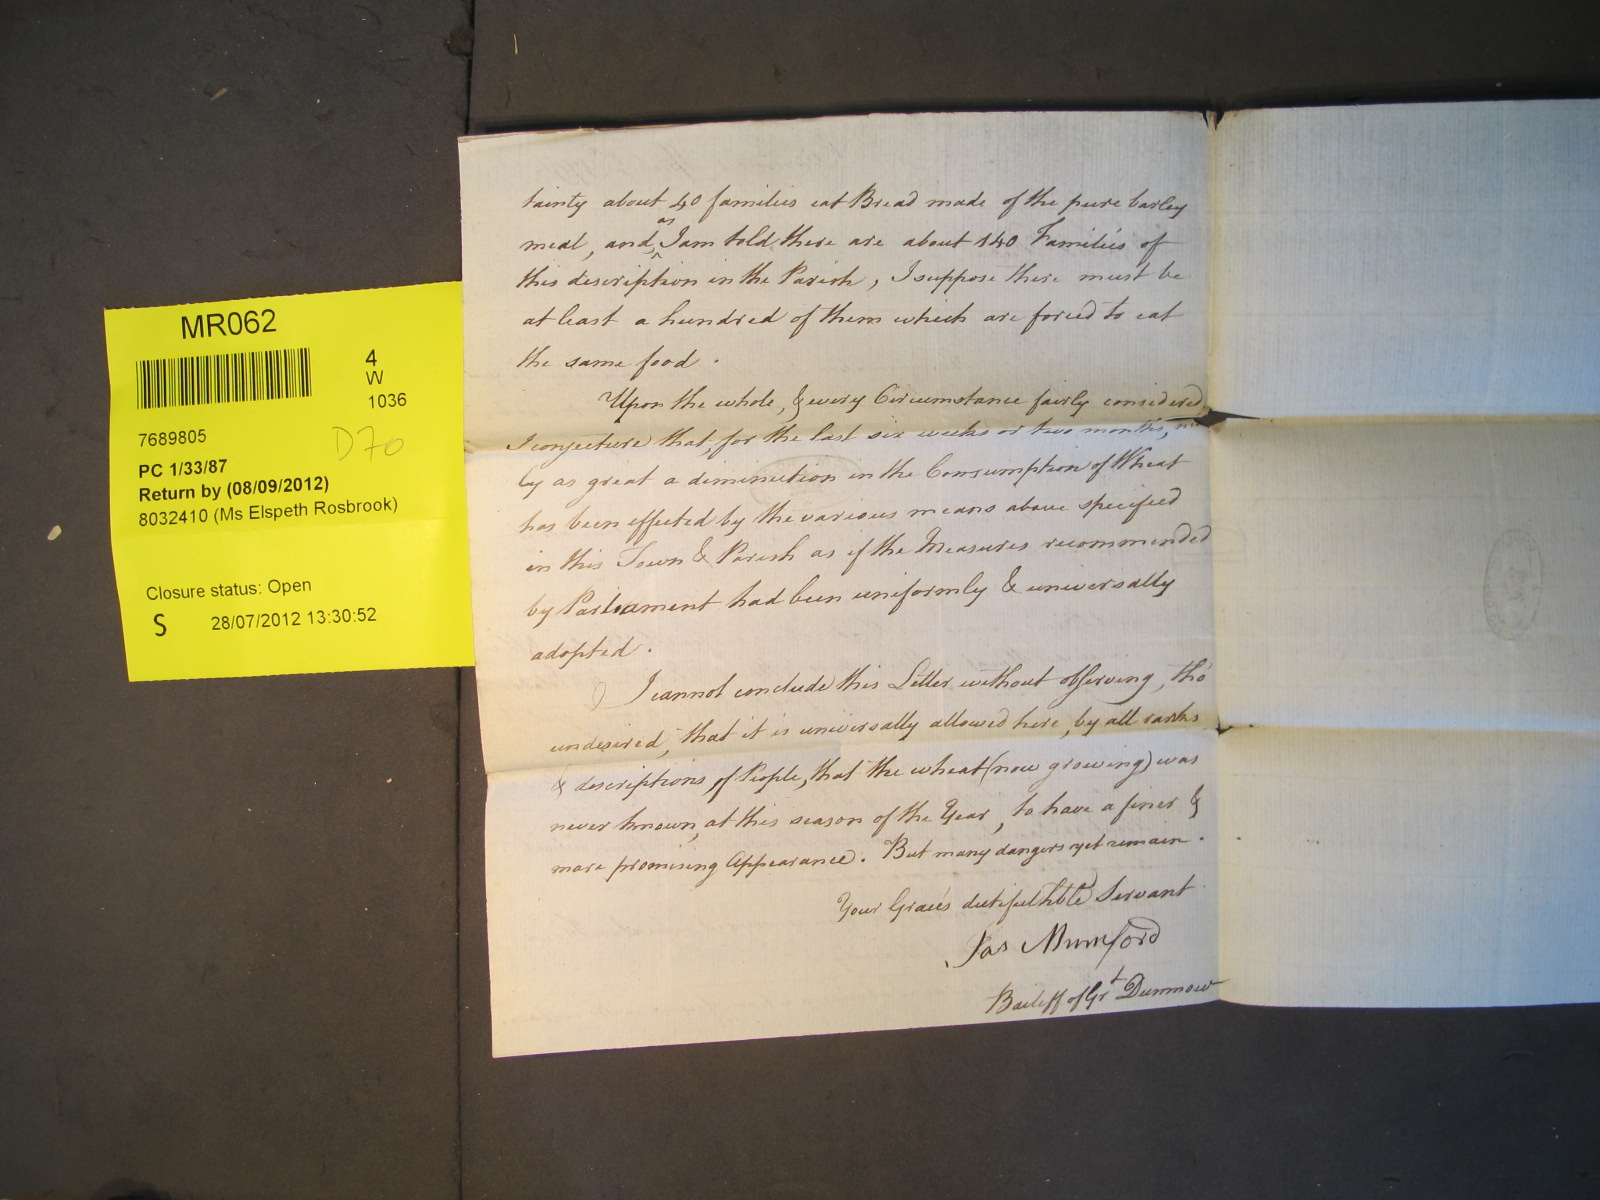 MR062
4
W
1036
7689805
D70
PC 1/33/87
Return by (08/09/2012)
8032410 (Ms Elspeth Rosbrook)
Closure status: Open
S 28/07/2012 13:30:52
tainty about 40 families eat Bread made of the pure barley
meal, and as I am told there are about 140 Families of
this description in the Parish, I suppose there must be
at least a hundred of them which are forced to eat
the same food.
Upon the whole, & every Circumstance fairly considered
I conjecture that, for the last six weeks or two months,
ly as great a diminution in the Consumption of Wheat
has been effected by the various means above specified
in this Town & Parish as if the Measures recommended
by Parliament had been uniformly & universally
adopted.
I cannot conclude this Letter without observing, tho'
undesired, that it is universally allowed here, by all ranks
& descriptions of People, that the wheat (now growing) was
never known, at this season of the Year, to have a finer &
more promising Appearance. But many dangers yet remain.
Your Grace's dutiful hble Servant
Jas Mumford
Bailiff of Grt Dunmow